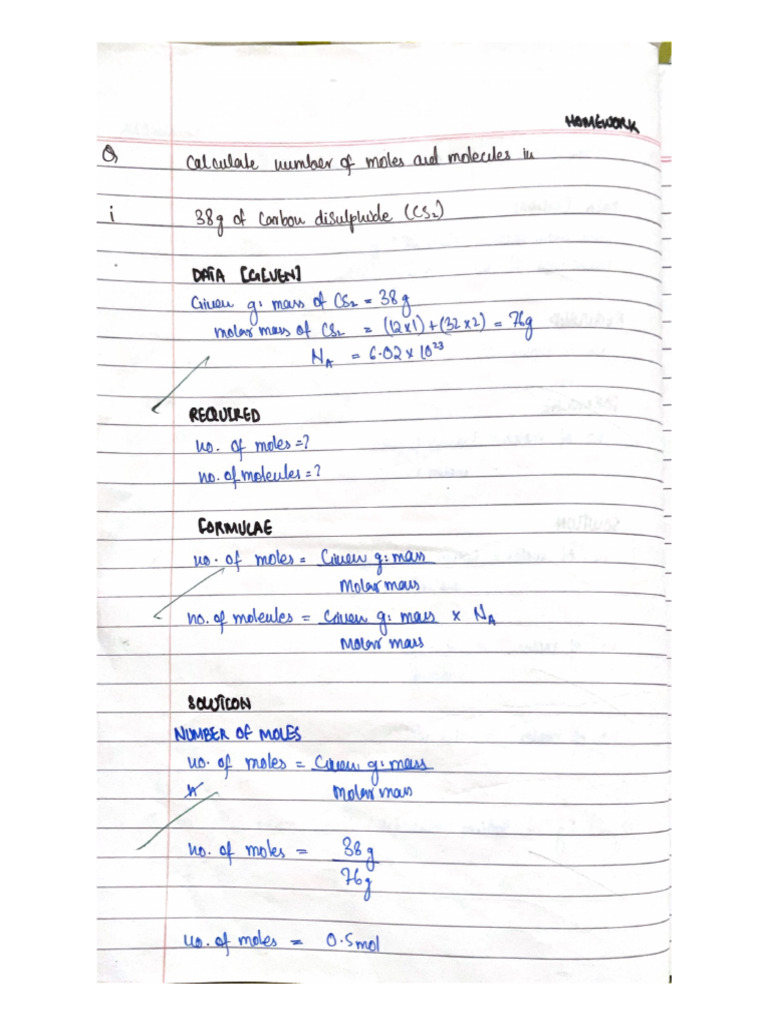 HOMEWORK
Q Calculate number of moles and molecules in
i 38g of Carbon disulphide (CS₂)
DATA [GIVEN]
Given g: mass of CS₂ = 38g
molar mass of CS₂ = (12x1)+(32x2) = 76g
N_A = 6.02 x 10²³
REQUIRED
no. of moles=?
no. of molecules=?
FORMULAE
no. of moles = Given g: mass
Molar mass
no. of molecules = Given g: mass x N_A
Molar mass
SOLUTION
NUMBER OF MOLES
no. of moles = Given g: mass
Molar mass
no. of moles = 38g
76g
no. of moles = 0.5mol